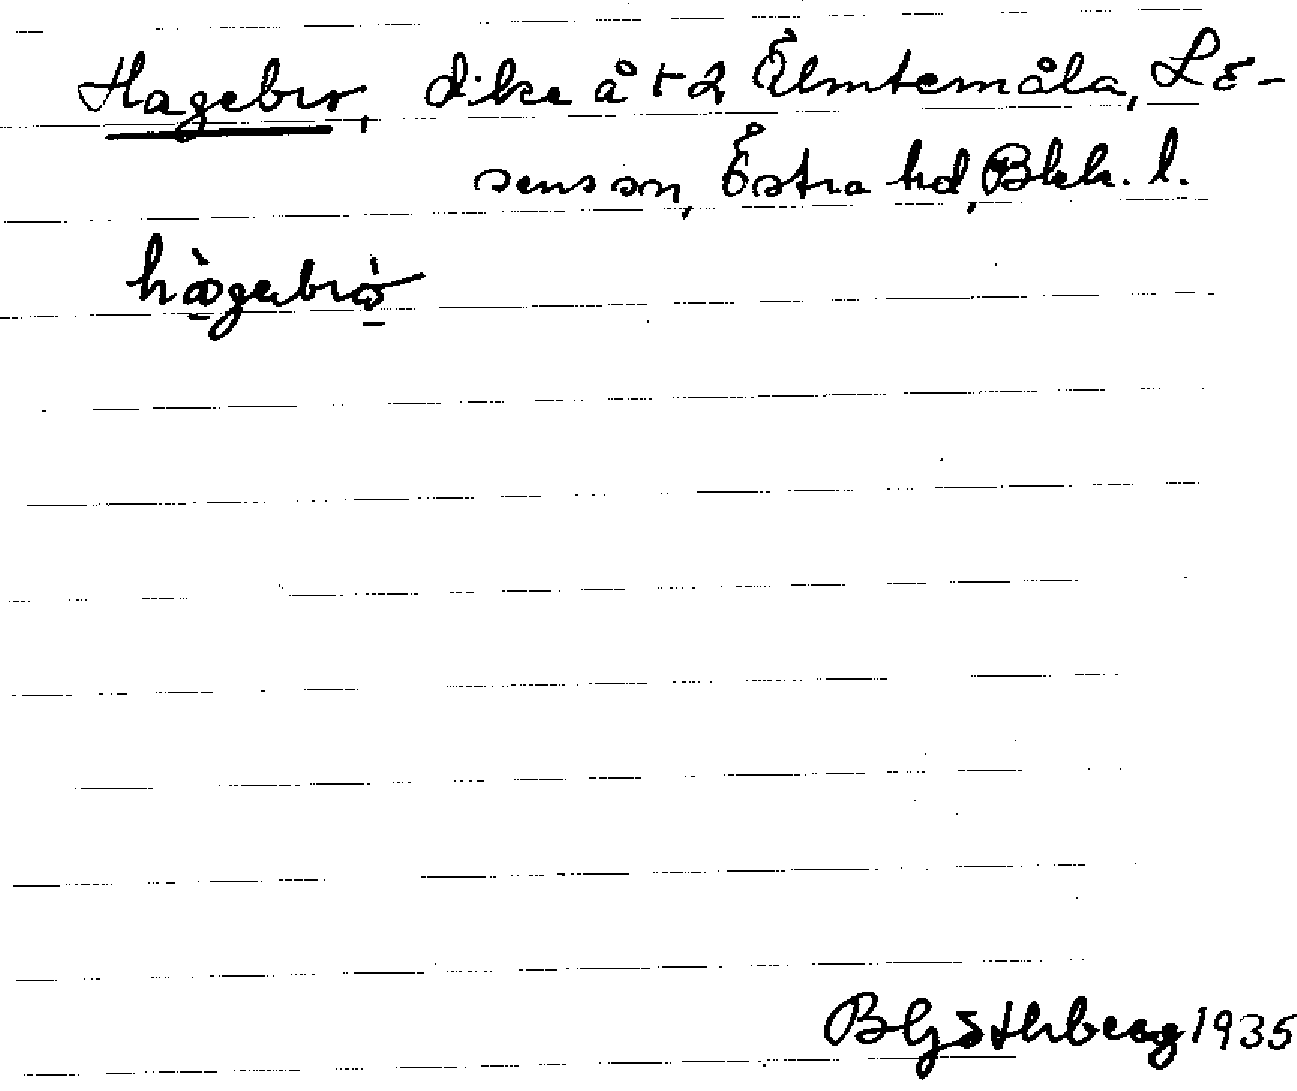 Hagebro, dike å 1-2 Elmtemåla, Lö-
sensn, Östra hd, Blek. l.
hàgebrò
B Göthberg 1935